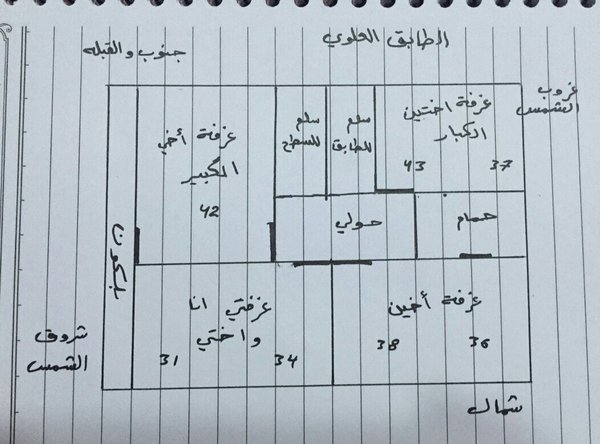 الطابق العلوي
جنوب والقبله
غروب
الشمس
غرفة اختين
الكبار
43 37
سلم
للطابق
سلم
للسطح
غرفة أخي
الكبير
42
حمام
حولي
بلكون
غرفة أخين
38 36
غرفتي انا
واختي
31 34
شروق
الشمس
شمال